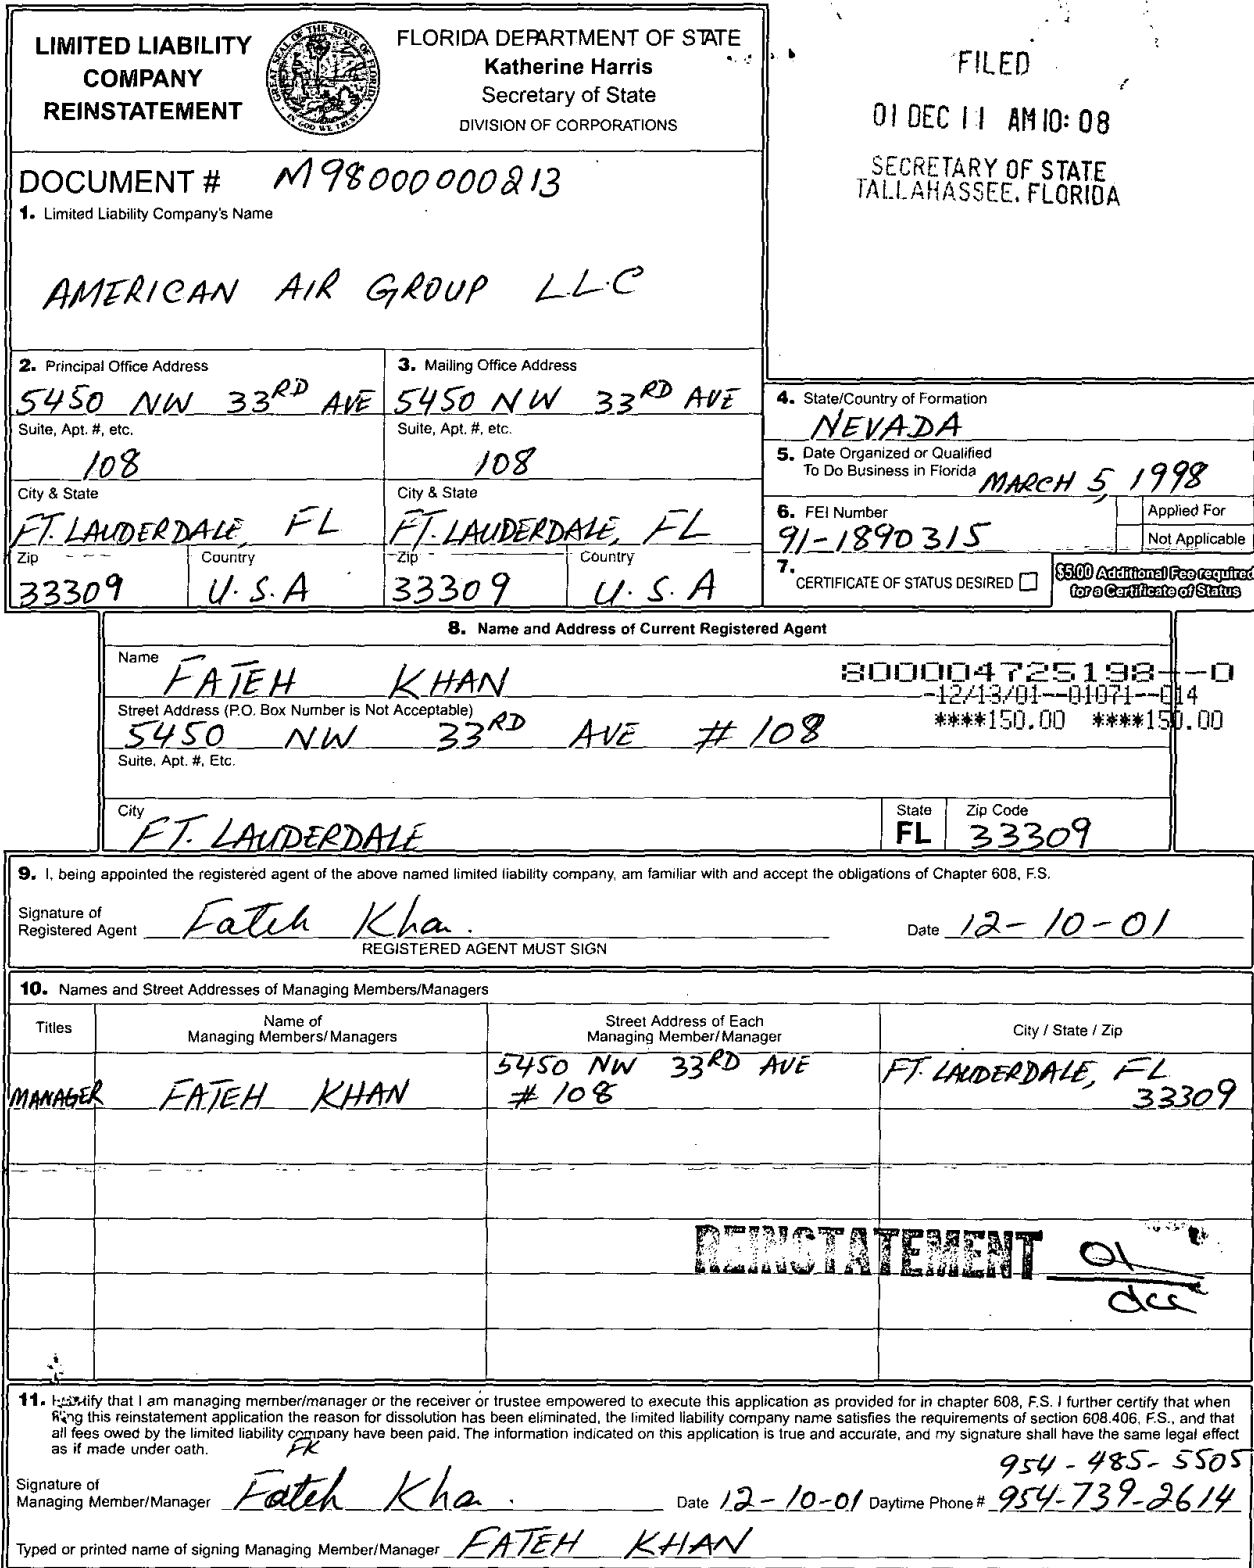 LIMITED LIABILITY
COMPANY
REINSTATEMENT
GREAT SEAL OF THE STATE OF FLORIDA
IN GOD WE TRUST
FLORIDA DEPARTMENT OF STATE
Katherine Harris
Secretary of State
DIVISION OF CORPORATIONS
FILED
01 DEC 11 AM 10: 08
SECRETARY OF STATE
TALLAHASSEE, FLORIDA
DOCUMENT # M98000000213
1. Limited Liability Company's Name
AMERICAN AIR GROUP L.L.C
2. Principal Office Address
5450 NW 33RD AVE
Suite, Apt. #, etc.
108
City & State
FT. LAUDERDALE, FL
Zip Country
33309 U.S.A
3. Mailing Office Address
5450 NW 33RD AVE
Suite, Apt. #, etc.
108
City & State
FT. LAUDERDALE, FL
Zip Country
33309 U.S.A
4. State/Country of Formation
NEVADA
5. Date Organized or Qualified
To Do Business in Florida MARCH 5, 1998
6. FEI Number
91-1890315
Applied For
Not Applicable
7. CERTIFICATE OF STATUS DESIRED
$5.00 Additional Fee required
for a Certificate of Status
8. Name and Address of Current Registered Agent
Name FATEH KHAN
800004725198--0
-12/13/01--01071--014
****150.00 ****150.00
Street Address (P.O. Box Number is Not Acceptable)
5450 NW 33RD AVE # 108
Suite, Apt. #, Etc.
City FT. LAUDERDALE
State FL
Zip Code 33309
9. I, being appointed the registered agent of the above named limited liability company, am familiar with and accept the obligations of Chapter 608, F.S.
Signature of
Registered Agent Fateh Kha. Date 12-10-01
REGISTERED AGENT MUST SIGN
10. Names and Street Addresses of Managing Members/Managers
Titles
Name of
Managing Members/Managers
Street Address of Each
Managing Member/Manager
City / State / Zip
MANAGER FATEH KHAN
5450 NW 33RD AVE
# 108
FT. LAUDERDALE, FL
33309
REINSTATEMENT 01
dcc
11. I certify that I am managing member/manager or the receiver or trustee empowered to execute this application as provided for in chapter 608, F.S. I further certify that when
filing this reinstatement application the reason for dissolution has been eliminated, the limited liability company name satisfies the requirements of section 608.406, F.S., and that
all fees owed by the limited liability company have been paid. The information indicated on this application is true and accurate, and my signature shall have the same legal effect
as if made under oath. FK
954-485-5505
Signature of
Managing Member/Manager Fateh Kha. Date 12-10-01 Daytime Phone # 954-739-2614
Typed or printed name of signing Managing Member/Manager FATEH KHAN